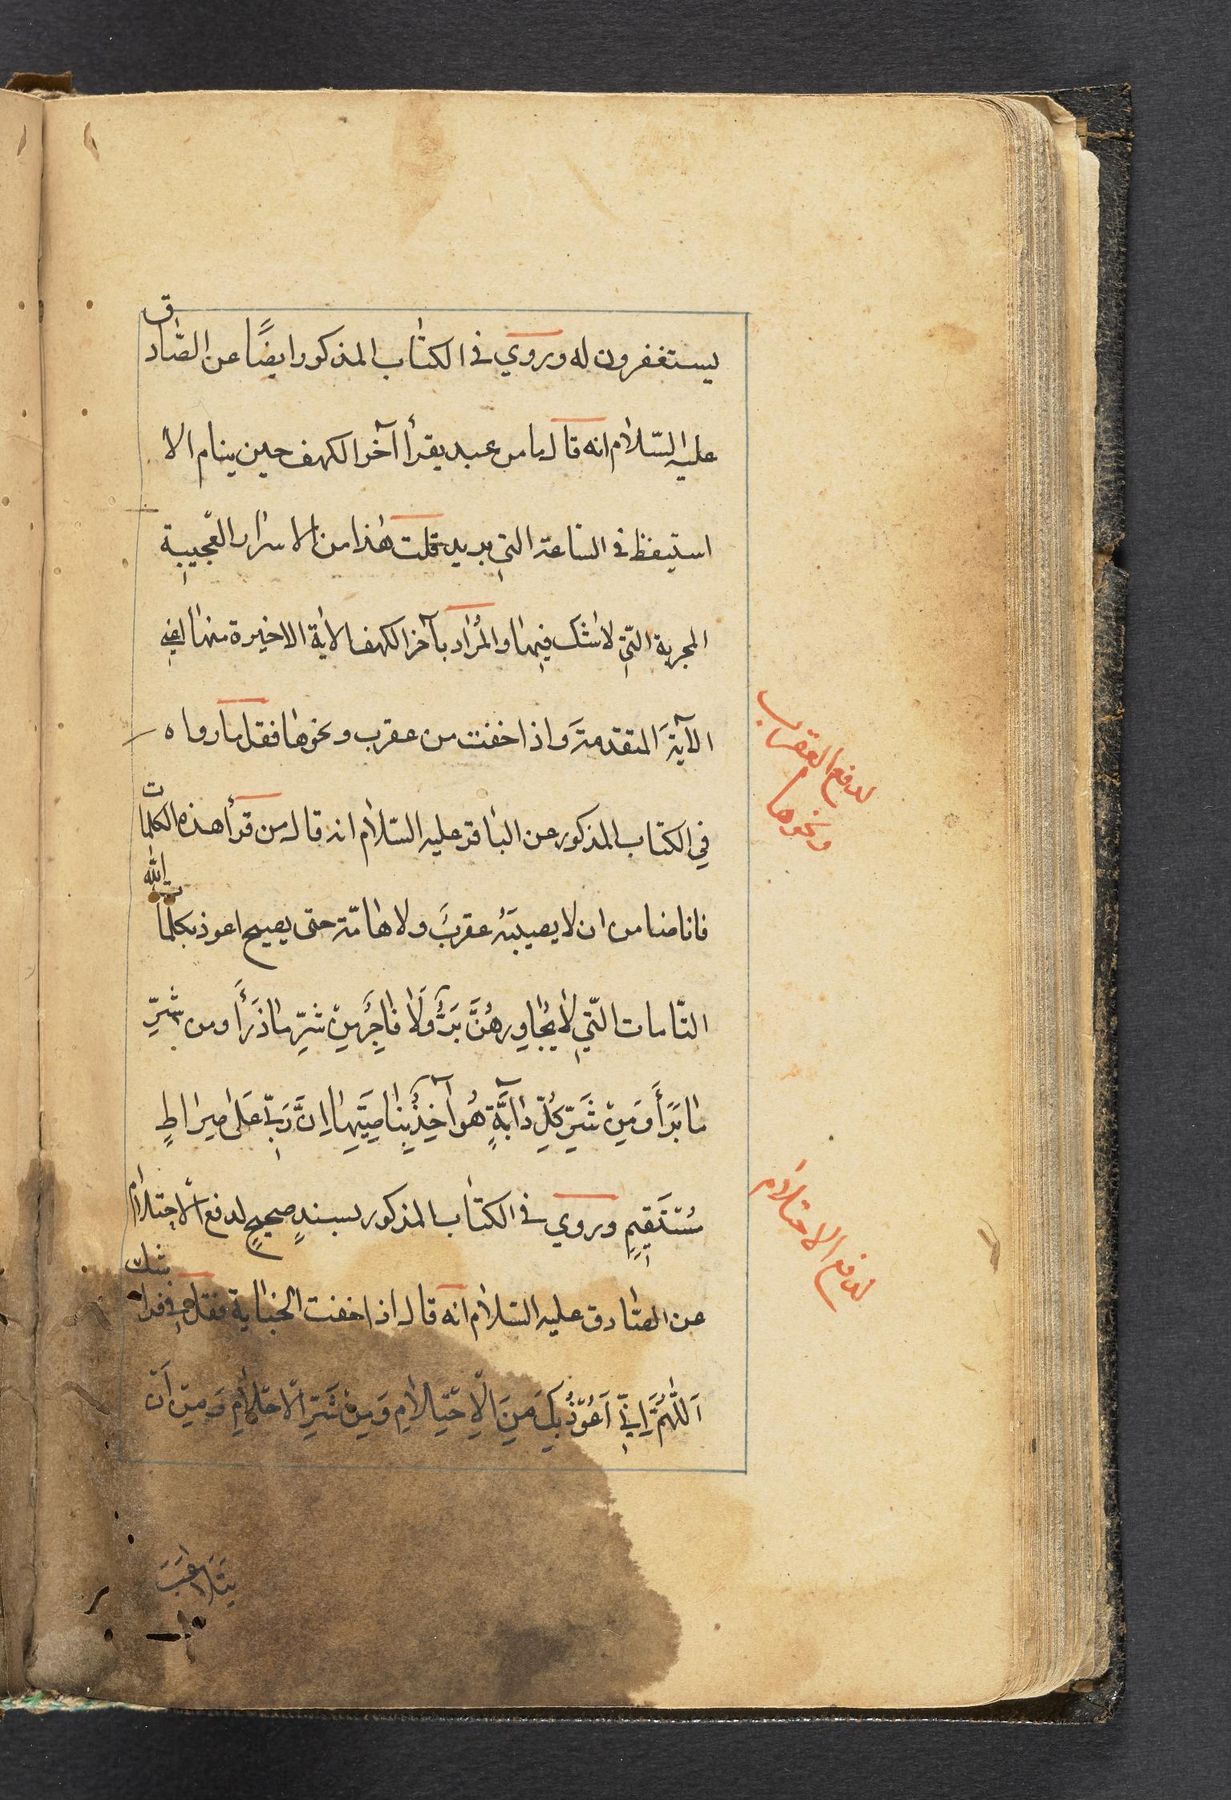 يستغفرون له وروي في الكتاب المذكور ايضًا عن الصّادق
عليه السّلام انه قال ما من عبد يقرأ آخر الكهف حين ينام الا
استيقظ في الساعة التي يريد قلت هذا من الاسرار العجيبة
المجربة التي لا شك فيها والمُراد بآخر الكهف الاية الاخيرة منها اعني
الآيَةَ المتقدمةَ واذا خفت من عقرب ونحوها فقل ما رواه
لدفع العقرب
ونحوها
في الكتاب المذكور عن الباقر عليه السّلام انه قال من قرأ هذه الكلمات
فانا ضامن ان لا يصيبَهُ عقربَ ولا هامّة حتى يصبح اعوذ بكلمات الله
التّامات الّتي لَا يُجاوِرهُنَّ بَرٌّ وَلَا فاجِرٌ مِنْ شرِّ ما ذَرَأَ ومن شرِّ
ما بَرَأَ وَمِنْ شَرِّ كُلِّ دآبَّةٍ هُوَ آخِذٌ بِناصِيَتِها اِنَّ رَبّي عَلى صِراطٍ
مُسْتَقِيمٍ وروي في الكتاب المذكور بسندٍ صحيحٍ لدفع الاحتلام
لدفع الاحتلام
عن الصّادق عليه السّلام انّه قال اذا خفت الجنابة فقل في فراشك
اَللّهُمَّ اِنّي اَعُوذُ بِكَ مِنَ الْاِحْتِلامِ وَمِنْ شَرِّ الْاحلامِ وَمِنْ اَنْ
يَتَلاعَبَ